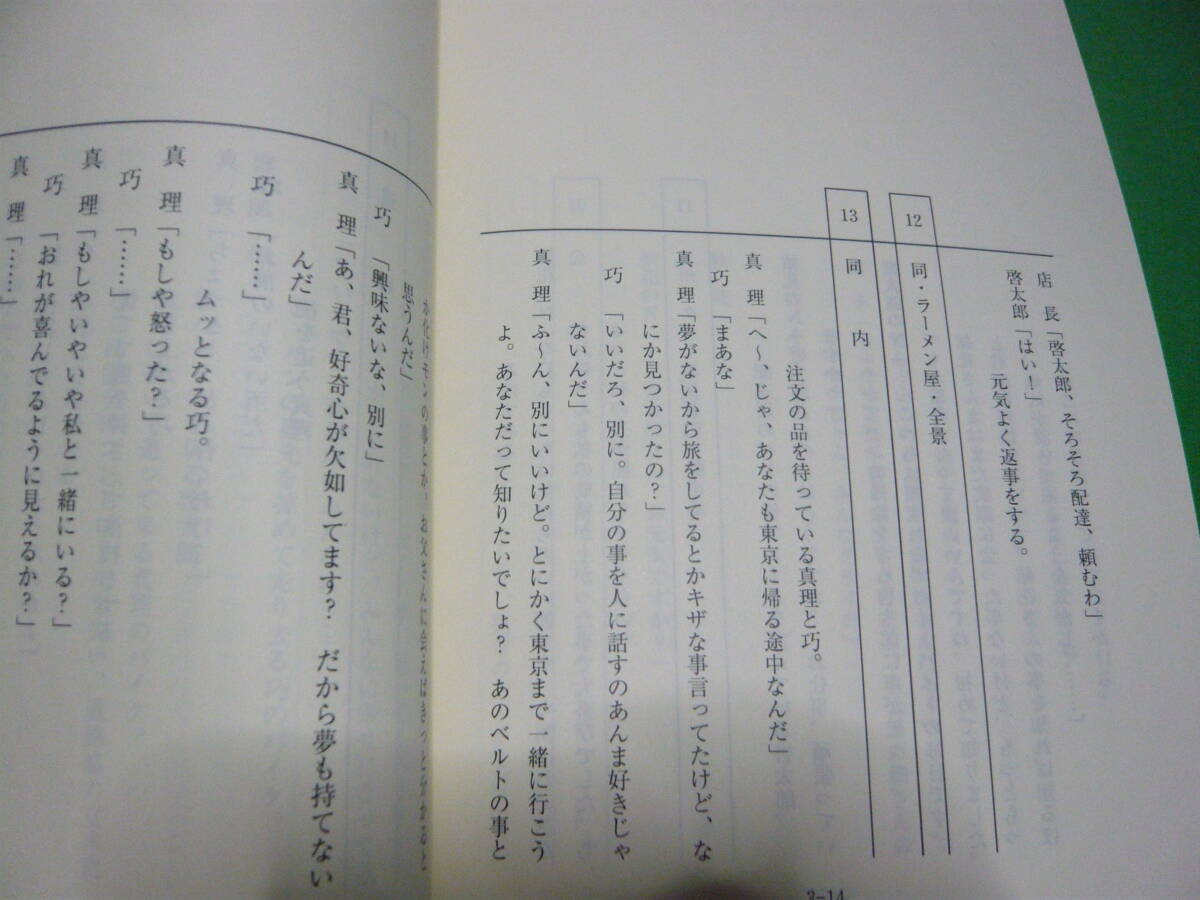 店　長「啓太郎、そろそろ配達、頼むわ」
啓太郎「はい！」
元気よく返事をする。
12　同・ラーメン屋・全景
13　同　　内
注文の品を待っている真理と巧。
真　理「へ〜、じゃ、あなたも東京に帰る途中なんだ」
巧　「まあな」
真　理「夢がないから旅をしてるとかキザな事言ってたけど、な
にか見つかったの？」
巧　「いいだろ、別に。自分の事を人に話すのあんま好きじゃ
ないんだ」
真　理「ふ〜ん、別にいいけど。とにかく東京まで一緒に行こう
よ。あなただって知りたいでしょ？　あのベルトの事と
3-14
か、化けモンの事とか。お父さんに会えばきっと分かると
思うんだ」
巧　「興味ないな、別に」
真　理「あ、君、好奇心が欠如してます？　だから夢も持てない
んだ」
巧　「……」
ムッとなる巧。
真　理「もしや怒った？」
巧　「……」
真　理「もしやいやいや私と一緒にいる？」
巧　「おれが喜んでるように見えるか？」
真　理「……」